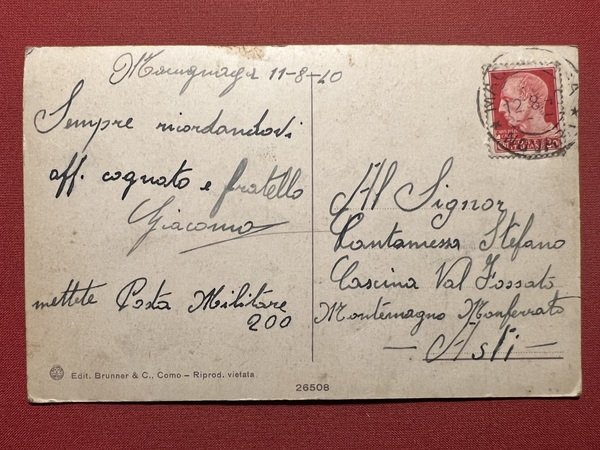 Macugnaga 11-8-40
Sempre ricordandovi
aff. cognato e fratello
Giacomo
mettete Posta Militare
200
Al Signor
Cantamessa Stefano
Cascina Val Fossato
Montemagno Monferrato
- Asti -
Edit. Brunner & C., Como - Riprod. vietata
26508